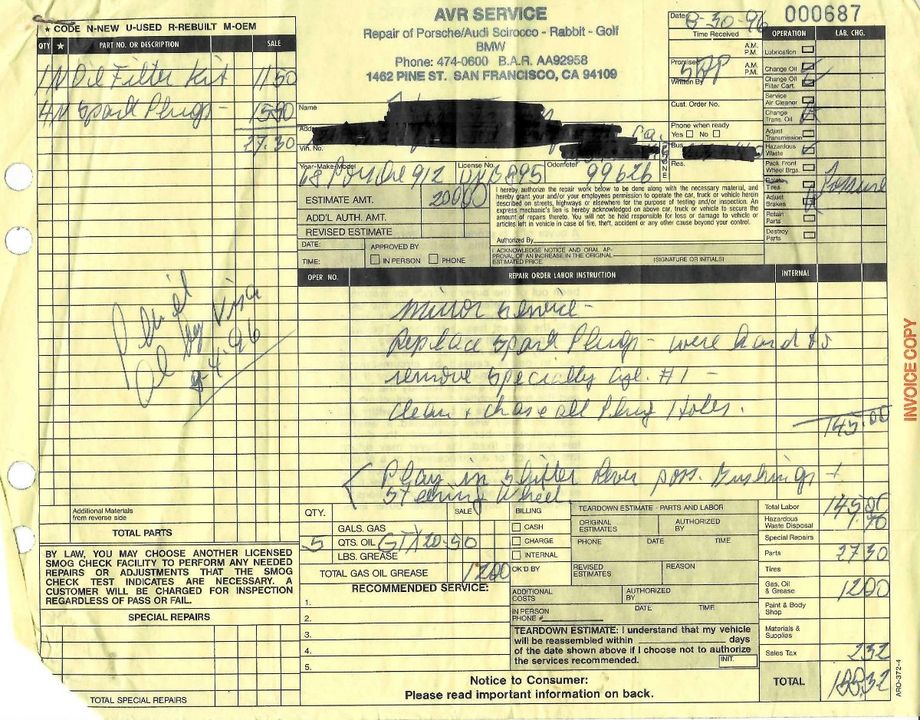 ★ CODE N-NEW U-USED R-REBUILT M-OEM
QTY ★ PART NO. OR DESCRIPTION SALE
1 N Oil Filter Kit 11 50
4 N Spark Plugs -
27.30
AVR SERVICE
Repair of Porsche/Audi Scirocco - Rabbit - Golf
BMW
Phone: 474-0600 B.A.R. AA92958
1462 PINE ST. SAN FRANCISCO, CA 94109
Date 8-30-96
000687
Time Received A.M. P.M.
Promised 5PM A.M. P.M.
Written By
Cust. Order No.
Phone when ready
Yes No
Bus.
Res.
PHONE
Name
Address
Ca.
Vin. No.
Year-Make-Model License No. Odometer
68 Porsche 912 99626
ESTIMATE AMT. 200 00
ADD'L AUTH. AMT.
REVISED ESTIMATE
DATE:
TIME:
APPROVED BY
IN PERSON PHONE
I hereby authorize the repair work below to be done along with the necessary material, and
hereby grant your and/or your employees permission to operate the car, truck or vehicle herein
described on streets, highways or elsewhere for the purpose of testing and/or inspection. An
express mechanic's lien is hereby acknowledged on above car, truck or vehicle to secure the
amount of repairs thereto. You will not be held responsible for loss or damage to vehicle or
articles left in vehicle in case of fire, theft, accident or any other cause beyond your control.
Authorized By
I ACKNOWLEDGE NOTICE AND ORAL AP-
PROVAL OF AN INCREASE IN THE ORIGINAL
ESTIMATED PRICE.
(SIGNATURE OR INITIALS)
OPERATION LAB. CHG.
Lubrication
Change Oil
Change Oil Filter Cart.
Service Air Cleaner
Change Trans. Oil
Adjust Transmission
Hazardous Waste
Pack Front Wheel Brgs.
Rotate Tires
Pressure
Adjust Brakes
Retain Parts
Destroy Parts
OPER NO. REPAIR ORDER LABOR INSTRUCTION INTERNAL
minor service -
Replace Spark Plugs - were hard to
remove specially cyl. #1 -
clean + chase all Plug Holes.
145.00
Play in shifter lever poss. Bushings +
Steering Wheel
by Visa
INVOICE COPY
Additional Materials
from reverse side
TOTAL PARTS
BY LAW, YOU MAY CHOOSE ANOTHER LICENSED
SMOG CHECK FACILITY TO PERFORM ANY NEEDED
REPAIRS OR ADJUSTMENTS THAT THE SMOG
CHECK TEST INDICATES ARE NECESSARY. A
CUSTOMER WILL BE CHARGED FOR INSPECTION
REGARDLESS OF PASS OR FAIL.
SPECIAL REPAIRS
TOTAL SPECIAL REPAIRS
QTY. SALE
GALS. GAS
5 QTS. OIL GTX 20-50
LBS. GREASE
TOTAL GAS OIL GREASE 12 00
RECOMMENDED SERVICE:
1.
2.
3.
4.
5.
BILLING
CASH
CHARGE
INTERNAL
OK'D BY
TEARDOWN ESTIMATE - PARTS AND LABOR
ORIGINAL ESTIMATES AUTHORIZED BY
PHONE DATE TIME
REVISED ESTIMATES REASON
ADDITIONAL COSTS AUTHORIZED BY
IN PERSON
PHONE # DATE TIME
TEARDOWN ESTIMATE: I understand that my vehicle
will be reassembled within days
of the date shown above if I choose not to authorize
the services recommended. INIT.
Notice to Consumer:
Please read important information on back.
Total Labor 145.00
Hazardous Waste Disposal
Special Repairs
Parts 27 30
Tires
Gas, Oil & Grease 12 00
Paint & Body Shop
Materials & Supplies
Sales Tax 2 32
TOTAL 188.32
ARO-372-4